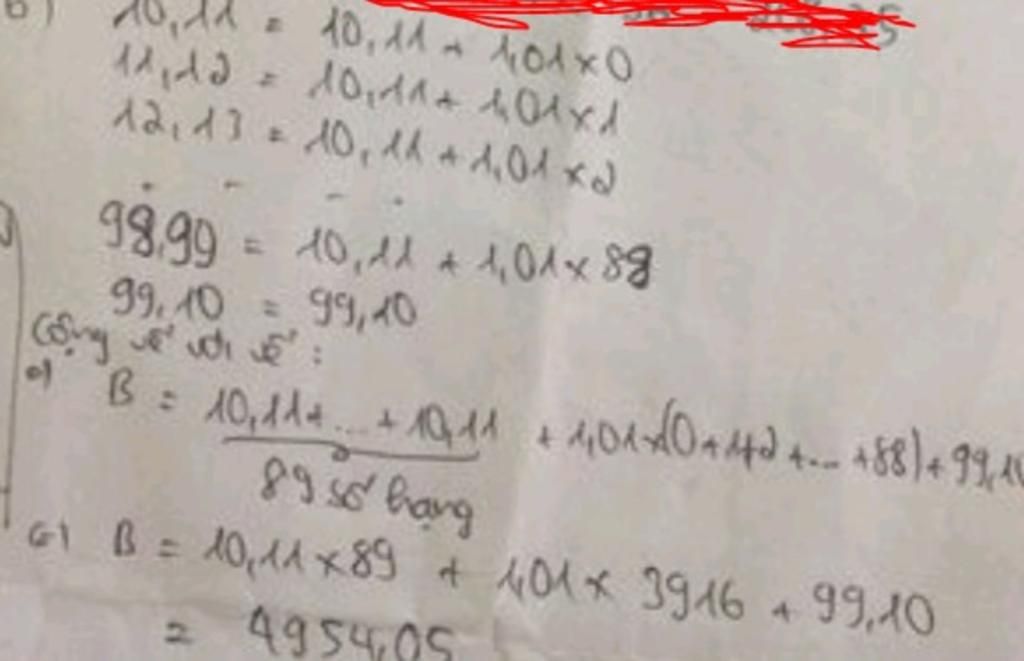 b) 10,11 = 10,11 + 1,01 x 0
11,12 = 10,11 + 1,01 x 1
12,13 = 10,11 + 1,01 x 2
. - - .
98,99 = 10,11 + 1,01 x 88
99,10 = 99,10
Cộng vế với vế :
<=> B = 10,11 + ... + 10,11 + 1,01 x (0 + 1 + 2 + ... + 88) + 99,10
89 số hạng
<=> B = 10,11 x 89 + 1,01 x 3916 + 99,10
= 4954,05